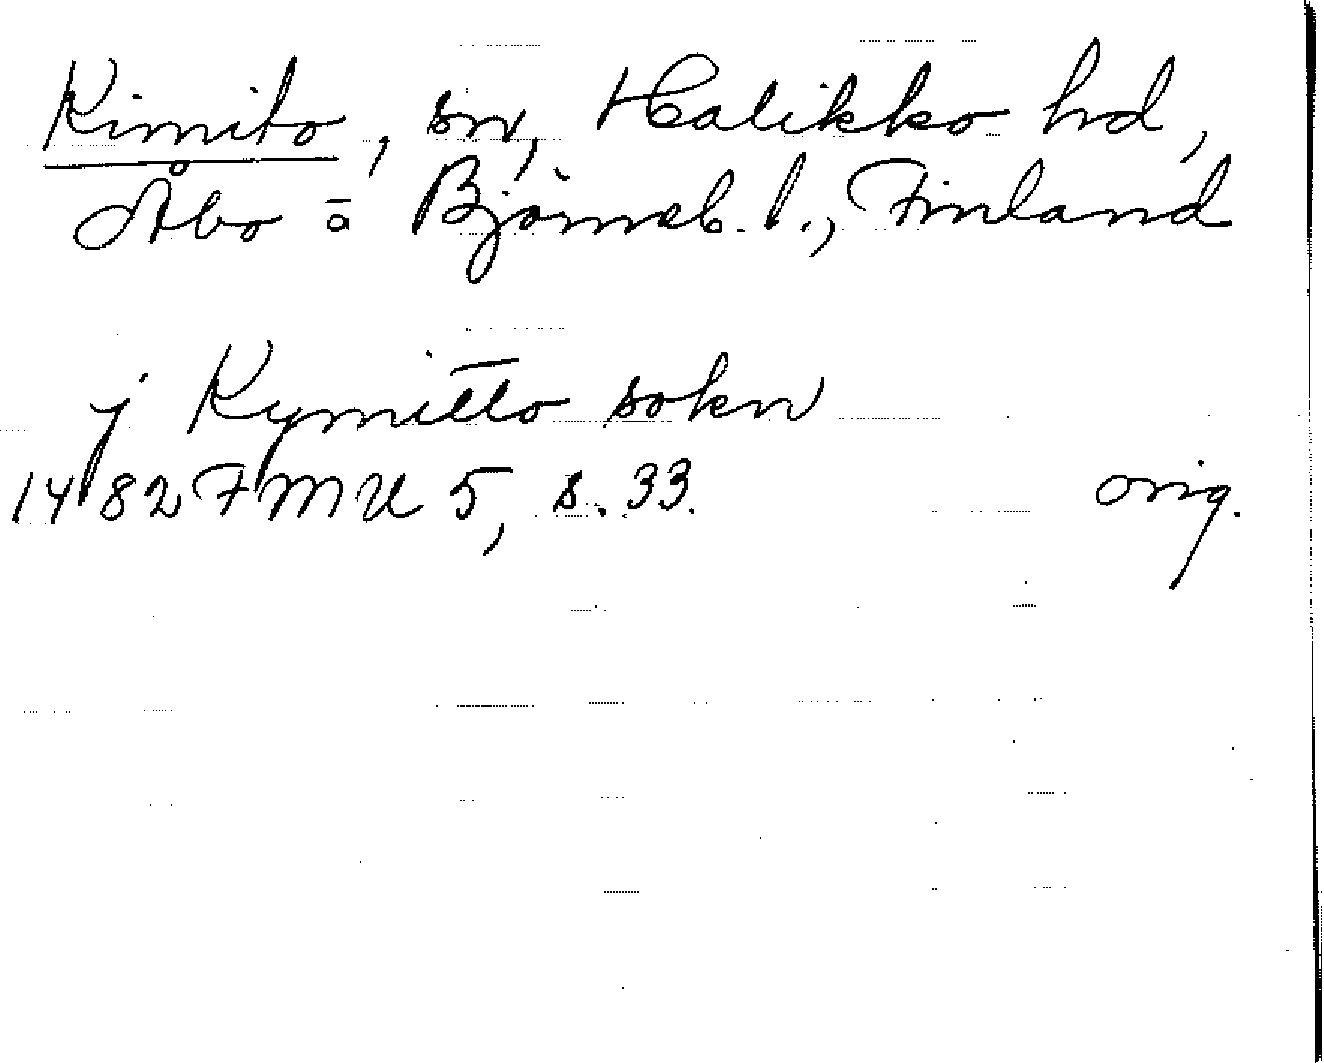 Kimito, sn, Halikko hd,
Åbo o Björneb. l., Finland
j Kymitto sokn
1482 FMU 5, s. 33. orig.